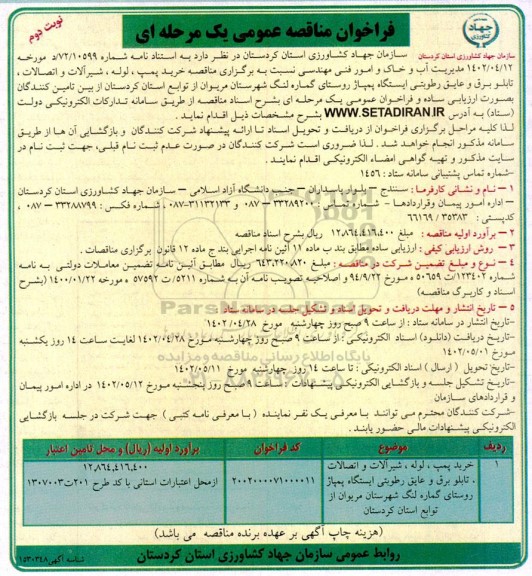 فراخوان مناقصه عمومی یک مرحله ای
نوبت دوم
سازمان جهاد کشاورزی استان کردستان
سازمان جهاد کشاورزی استان کردستان در نظر دارد به استناد نامه شماره ۷۲/۱۰۵۹۹/د مورخه
۱۴۰۲/۰۴/۱۲ مدیریت آب و خاک و امور فنی مهندسی نسبت به برگزاری مناقصه خرید پمپ ، لوله ، شیرآلات و اتصالات ،
تابلو برق و عایق رطوبتی ایستگاه پمپاژ روستای گماره لنگ شهرستان مریوان از توابع استان کردستان از بین تامین کنندگان
بصورت ارزیابی ساده و فراخوان عمومی یک مرحله ای بشرح اسناد مناقصه از طریق سامانه تدارکات الکترونیکی دولت
(ستاد) به آدرس WWW.SETADIRAN.IR بشرح مشخصات ذیل اقدام نماید .
لذا کلیه مراحل برگزاری فراخوان از دریافت و تحویل اسناد تا ارائه پیشنهاد شرکت کنندگان و بازگشایی آن ها از طریق
سامانه مذکور انجام خواهد شد . لذا ضروری است شرکت کنندگان در صورت عدم ثبت نام قبلی، جهت ثبت نام در
سایت مذکور و تهیه گواهی امضاء الکترونیکی اقدام نمایند .
-شماره تماس پشتیبانی سامانه ستاد : ۱۴۵۶
۱ – نام و نشانی کارفرما : سنندج – بلوار پاسداران – جنب دانشگاه آزاد اسلامی – سازمان جهاد کشاورزی استان کردستان
– اداره امور پیمان وقراردادها – شماره تماس : ۳۳۲۸۹۲۰۰ – ۰۸۷ ، ۳۱۱۳۲۱۳۳–۰۸۷ ، شماره فکس : ۳۳۲۸۸۷۹۹ – ۰۸۷ ،
کدپستی : ۳۵۳۸۳ / ۶۶۱۶۹
۲ – برآورد اولیه مناقصه : مبلغ ۱۲,۸۶۴,۴۱۶,۴۰۰ ریال بشرح اسناد مناقصه
۳ – روش ارزیابی کیفی : ارزیابی ساده مطابق بند ب ماده ۱۱ آئین نامه اجرایی بند ج ماده ۱۲ قانون برگزاری مناقصات .
۴ – نوع و مبلغ تضمین شرکت در مناقصه : مبلغ ۶۴۳,۲۲۰,۸۲۰ ریال مطابق آئین نامه تضمین معاملات دولتی به نامه
شماره ۱۲۳۴۰۲/ت ۵۰۶۵۹ ه مورخ ۹۴/۹/۲۲ و اصلاحیه تصویب نامه آن به شماره ۵۲۱۱/ت ۵۷۵۹۲ ه مورخه ۱۴۰۰/۰۱/۲۲ (بشرح
اسناد و کاربرگ مناقصه)
۵ – تاریخ انتشار و مهلت دریافت و تحویل اسناد و تشکیل جلسه در سامانه ستاد
–تاریخ انتشار در سامانه ستاد : از ساعت ۹ صبح روز چهارشنبه مورخ ۱۴۰۲/۰۴/۲۸
–تاریخ دریافت (دانلود) اسناد الکترونیکی : از ساعت ۹ صبح روز چهارشنبه مورخ ۱۴۰۲/۰۴/۲۸ لغایت ساعت ۱۴ روز یکشنبه
مورخ ۱۴۰۲/۰۵/۰۱
–تاریخ تحویل ( ارسال ) اسناد الکترونیکی : تا ساعت ۱۴ روز چهارشنبه مورخ ۱۴۰۲/۰۵/۱۱
–تاریخ تشکیل جلسه و بازگشایی الکترونیکی پیشنهادات – ساعت ۸ صبح روز پنجشنبه مورخ ۱۴۰۲/۰۵/۱۲ در اداره امور پیمان
و قراردادهای سازمان
–شرکت کنندگان محترم می توانند با معرفی یک نفر نماینده ( با معرفی نامه کتبی ) جهت شرکت در جلسه بازگشایی
الکترونیکی پیشنهادات مالی حضور یابند .
ردیف موضوع کد فراخوان برآورد اولیه (ریال) و محل تامین اعتبار
۱ خرید پمپ ، لوله ، شیرآلات و اتصالات
، تابلو برق و عایق رطوبتی ایستگاه پمپاژ
روستای گماره لنگ شهرستان مریوان از
توابع استان کردستان
۲۰۰۲۰۰۰۰۷۱۰۰۰۰۱۱
۱۲,۸۶۴,۴۱۶,۴۰۰
ازمحل اعتبارات استانی با کد طرح ۲۰۱ت۱۳۰۷۰۰۳
(هزینه چاپ آگهی بر عهده برنده مناقصه می باشد)
روابط عمومی سازمان جهاد کشاورزی استان کردستان
شناسه آگهی ۱۵۳۰۳۴۸